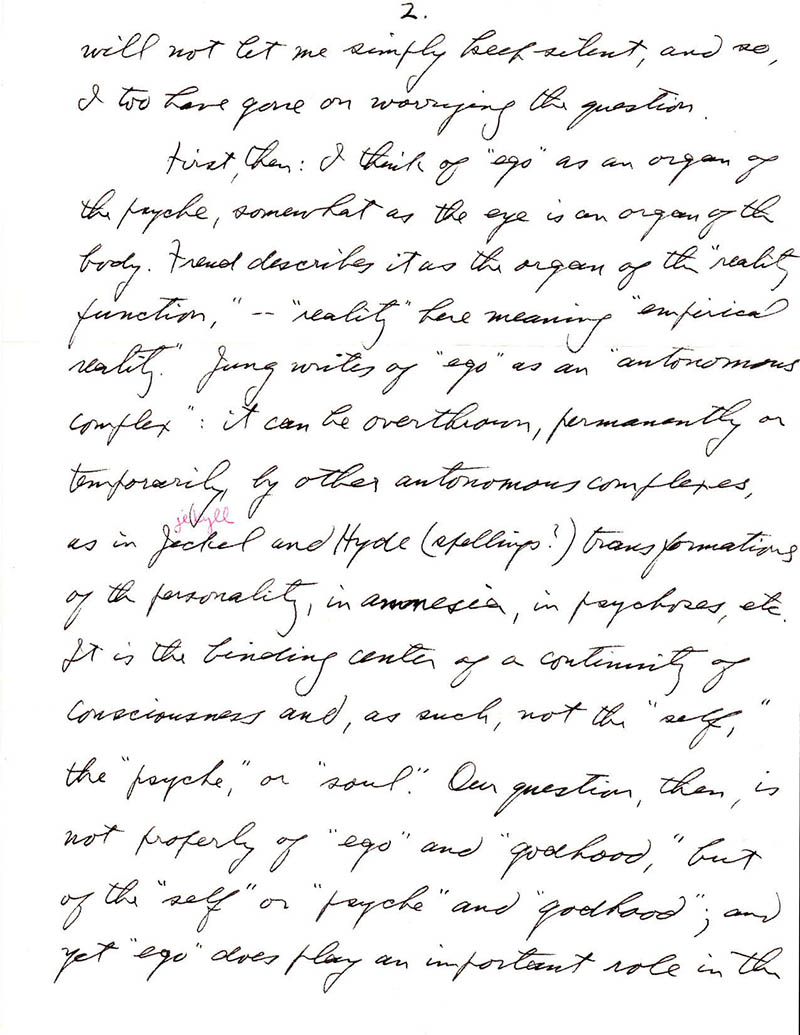 2.
will not let me simply keep silent, and so,
I too have gone on worrying the question.
First, then: I think of "ego" as an organ of
the psyche, somewhat as the eye is an organ of the
body. Freud describes it as the organ of the "reality
function," -- "reality" here meaning "empirical
reality." Jung writes of "ego" as an "autonomous
complex": it can be overthrown, permanently or
temporarily, by other autonomous complexes,
jekyll
as in Jeckel and Hyde (spellings?) transformations
of the personality, in amnesia, in psychoses, etc.
It is the binding center of a continuity of
consciousness and, as such, not the "self,"
the "psyche," or "soul". Our question, then, is
not properly of "ego" and "godhood," but
of the "self" or "psyche" and "godhood"; and
yet "ego" does play an important role in the